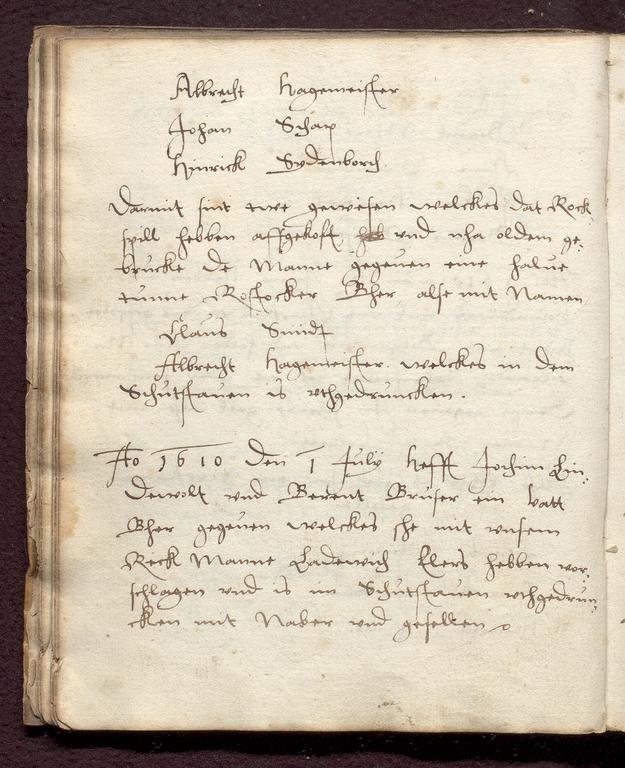 Albrecht Hagemeister
Johan Schap
Hinrick Sydenborch
Darmit sint twe gewesen welckes dat Rock
spill hebben affgekofft, vnd nha oldem ge-
brucke de Manne gegeuen eine halue
tunne Rostocker Bher, alse mit Namen
Claus Smidt
Albrecht Hagemeister. welckes in dem
Schutstauen is vthgedruncken.
Ao 1610 den 1 July hefft Jochim Lin-
dewolt vnd Berent Bruser ein vatt
Bher gegeuen welckes she mit vnsem
Reck Manne Ladewich Elers hebben vor-
schlagen vnd is im Schutstauen vthgedrun-
cken mit Naber vnd gesellen